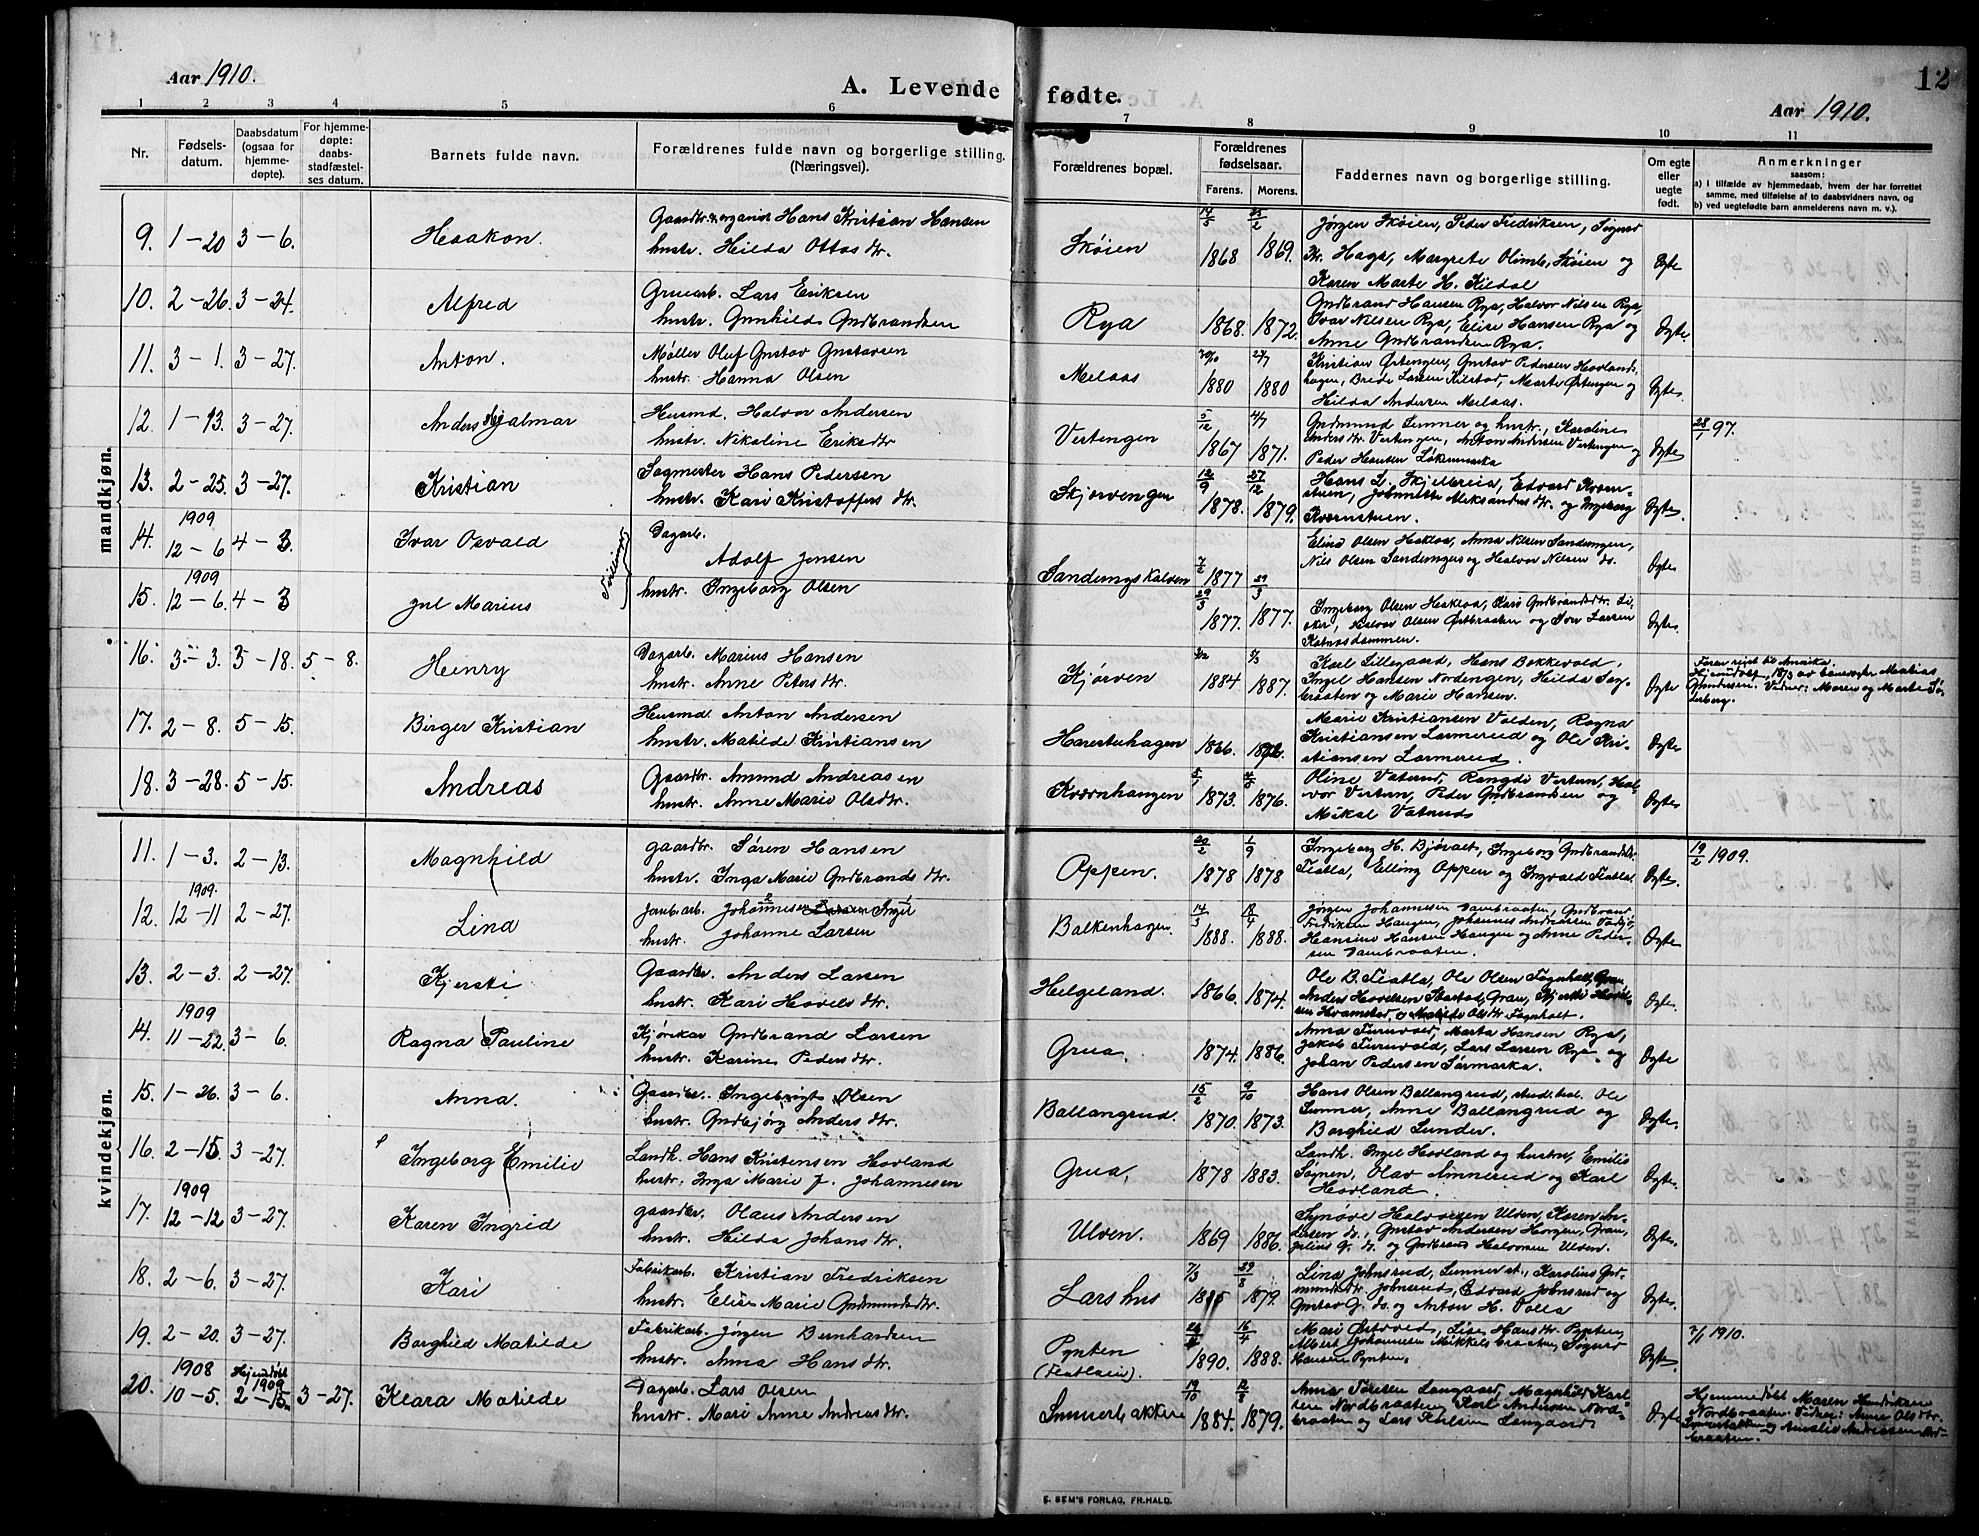 Aar 1910.
A. Levende fødte.
Aar 1910.
12
1 2 3 4 5 6 7 8 9 10 11
Nr.
Fødsels-
datum.
Daabsdatum
(ogsaa for
hjemme-
døpte).
For hjemme-
døpte:
daabs-
stadfæstel-
ses datum.
Barnets fulde navn.
Forældrenes fulde navn og borgerlige stilling.
(Næringsvei).
Forældrenes bopæl.
Forældrenes
fødselsaar.
Farens. Morens.
Faddernes navn og borgerlige stilling.
Om egte
eller
uegte
født.
Anmerkninger
saasom:
a) i tilfælde av hjemmedaab, hvem der har forrettet
samme, med tilføielse af to daabsvidners navn, og
b) ved uegtefødte barn anmelderens navn m. v.).
mandkjøn.
9. 1-20 3-6. Haakon. Gaardbr. organist Hans Kristian Hansen
hustr. Hilda Ottosdtr.
Skøien 1868 1869. Jørgen Skøien, Peder Fredriksen, Sigurd
Haga, Margrete Olimb, Skøien og
Karen Marte H. Kildal
Egte
10. 2-26. 3-24. Alfred Gruearb. Lars Eriksen
hustr. Gunhild Gudbrandsen
Rya 1868. 1872. Gudbrand Hansen Rya, Halvor Nilsen Rya,
Ivar Nilsen Rya, Elise Hansen Rya og
Anne Gudbrandsen Rya.
Egte.
11. 3-1. 3-27. Anton. Møller Oluf Gustav Gustavsen
hustr. Hanna Olsen
Melaas 1880 1880 Kristian Østengen, Gustav Pedersen Hovlands-
hagen, Brede Larsen Kilstad, Marte Østengen og
Hilda Andersen Melaas.
Egte.
12. 1-13. 3-27. Anders Hjalmar Husmd. Halvor Andersen
hustr. Nikoline Eriksdtr
Vestengen 5/12 1867 4/7 1871. Gudmund Lunner og hustr., Karoline
Andersdtr. Vestengen, Anton Andersen Vestengen og
Peder Hansen Løkenmarka
Egte 28/1 97.
13. 2-25. 3-27. Kristian Sagmester Hans Pedersen
hustr. Kari Kristoffersdtr.
Skjervengen 12/9 1878. 27/12 1879. Hans L. Skjellereia, Edvard Kværn-
stuen, Johannette Aleksandersdtr. og Ingeborg
Kværnstuen.
Egte.
14. 1909 12-6 4-3. Ivar Osvald
Tvillinger
Dagarb.
Adolf Jensen
hustr. Ingeborg Olsen
Sandungskalven 7/2 1877 29/3
Elina Olsen Hakloa, Anna Nilsen Sandungen,
Nils Olsen Sandungen og Halvor Nilsen do.
Egte
15. 1909 12-6. 4-3 Jul Marius
29/3 1877. 1877. Ingeborg Olsen Hakloa, Kari Gudbrandsdtr. Li-
aker, Halvor Olsen Østbraaten og Iver Larsen
Katnosdammen.
Egte.
16. 3-3. 3-18. 5-8. Henry Dagarb. Marius Hansen
hustr. Anne Petersdtr.
Kjørven 1884 5/3 1887. Karl Lillegaard, Hans Bokkevold,
Ingel Hansen Nordengen, Hilda Sag-
braaten og Marie Hansen.
Egte Faren reist til Amerika.
Hjemdøpt 18/3 av banevogter Mathias
Gundersen. Vidner: Maren og Marte Sø-
derberg.
17. 2-8. 5-15. Birger Kristian Husmd. Anton Andersen
hustr. Matilde Kristiansen
Harestuhagen 1866. 1872. Marie Kristiansen Volden, Ragna
Kristiansen Larmerud og Ole Kri-
stiansen Larmerud.
Egte
18. 3-28. 5-15. Andreas Gaardbr. Amund Andreasen
hustr. Anne Marie Olsdtr.
Kværnhaugen 1873. 1876. Oline Vatnud, Rangdi Vestern, Hal-
vor Vestern, Peder Gudbrandsen og
Mikal Vatnud
Egte
kvindekjøn.
11. 1-3. 2-13. Magnhild gaardbr. Søren Hansen
hustr. Inga Marie Gudbrandsdtr.
Oppen. 20/2 1878 1/9 1878 Ingeborg H. Bjøralt, Ingeborg Gudbrandsdtr.
Flatla, Elling Oppen og Ingvald Flatla.
Egte. 19/2 1909.
12. 1909. 12-11 2-27. Lina Jernbarb. Johannesen Ingel
hustr. Johanne Larsen
Balkenhagen. 14/3 1888. 18/4 1888. Jørgen Johannesen Dambraaten, Gudbrand
Fredriksen Haugen, Johannes Andreassen Vadsjø,
Hansine Hansen Haugen og Anne Peder-
sen Dambraaten.
Egte
13. 2-3. 2-27. Kjersti Gaardbr. Anders Larsen
hustr. Kari Hovelsdtr.
Helgeland. 1866. 1874. Ole B. Flatla, Ole Olsen Fognholt, Gran
Anders Hovelsen Starstad, Gran, Kjersti Hovel-
sen Hvamstad, og Matilde Olsdtr. Fognholt.
Egte.
14. 1909 11-22. 3-6. Ragna Pauline Kjørekar Gudbrand Larsen
hustr. Karine Pedersdtr.
Grua. 1874. 1886. Anna Furuvold, Marta Hansen Rya,
Jakob Furuvold, Lars Larsen Rya og
Johan Pedersen Sørmarka.
Egte
15. 1-26. 3-6. Anna. Gaardbr. Ingebrigt Olsen
hustr. Gudbjørg Andersdtr.
Ballangrud. 15/2 1870. 9/10 1873. Hans Olsen Ballangrud, stud. hal. Ole
Lunner, Anne Ballangrud og
Borghild Lunder.
Egte.
16. 2-15 3-27. Ingeborg Emilie Landh. Hans Kristensen Hovland
hustr. Inga Marie J. Johannesen
Grua, 1878 1883. Landh. Ingel Hovland og hustru, Emilie
Søgnen, Olav Ammerud og Karl
Hovland.
Egte.
17. 1909 12-12 3-27. Karen Ingrid gaardbr. Olaus Andersen
hustr. Hilda Johansdtr.
Ulven. 1869 1886. Synøve Halvorsen Ulven, Karen An-
dersen do., Gustav Andersen Horgen, Gran,
Julius G. do. og Gudbrand Halvorsen Ulven.
Egte.
18. 2-6. 3-27. Kari Fabrikarb. Kristian Fredriksen
hustr. Elise Marie Gudmundsdtr.
Larshus 7/3 1885 29/8 1879. Lina Johnsrud, Lunner st., Karoline Gud-
mundsdtr. Johnsrud, Edvard Johnsrud og
Gustav G. do. og Anton H. Volla
Egte.
19. 2-20. 3-27. Borghild Matilde Fabrikarb. Jørgen Bernhardsen
hustr. Anna Hansdtr.
Pynten
(Flatlaeie).
1890. 16/4 1888. Mari Østvold, Lise Hansdtr. Pynten,
Albert Johannesen Mikkelsbraaten, Sigurd
Hansen Pynten.
Egte. 7/1 1910.
20. 1908 10-5. Hjemdøbt 1909 2-15. 3-27. Klara Matilde Dagarb. Lars Olsen
hustr. Mari Anne Andreasdtr.
Lunnerbakken 19/10 1884. 1879. Anna Toresen Langaard, Magnhild Karl-
sen Nordbraaten, Karl Andersen Nord-
braaten og Lars Karlsen Langaard
Egte Hjemmedøbt Maren Hendriksen
Nordbraaten. Vidner: Anne Olsdtr.
Lunnerbakken og Amalie Andreassen Nord-
braaten.
E. SEM'S FORLAG, FR.HALD.